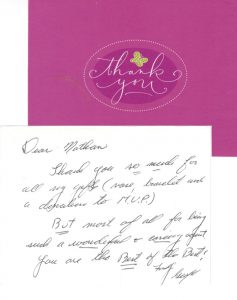 thank
you
Dear Nathan
Thank you so much for
all my gifts (vase, bracelet and
a donation to M.V.P.)
But most of all for being
such a wonderful & caring agent
You are the Best of the Best!